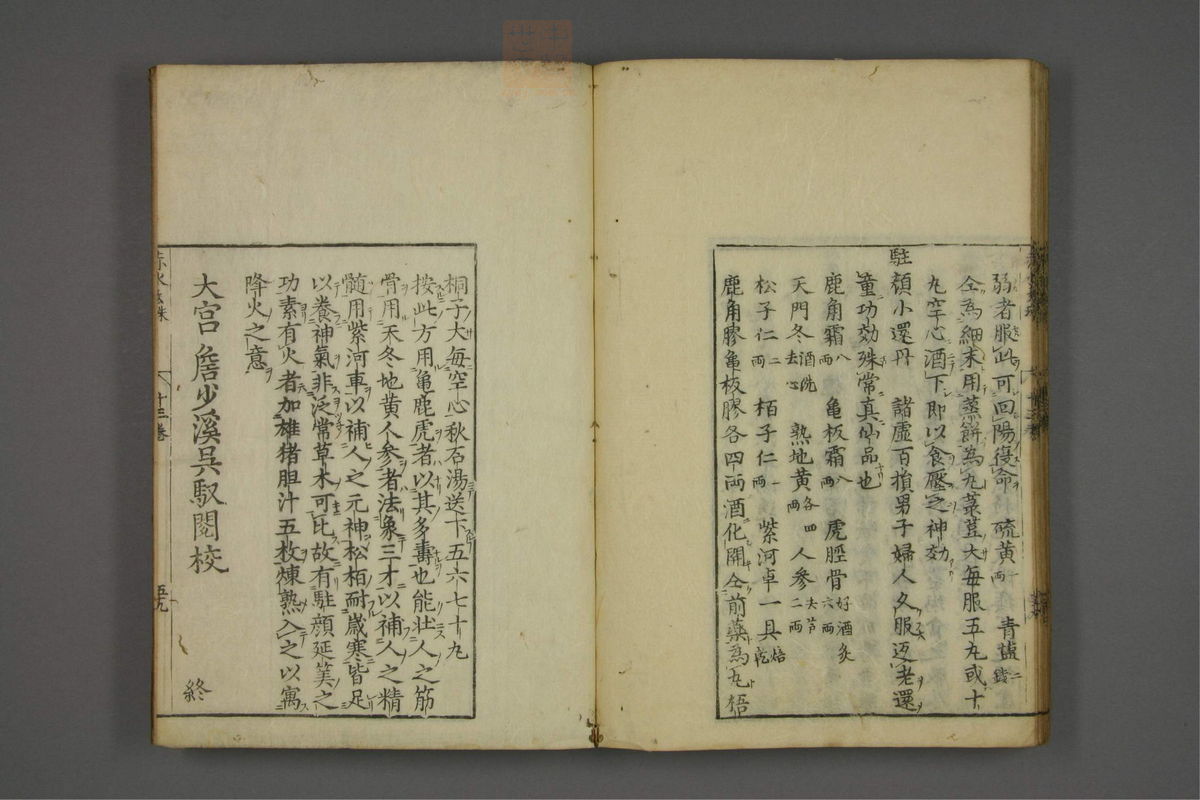 弱者服此可回陽復命　硫黄一両　青塩二錢
仝為細末用蒸餅為丸菉荳大每服五丸或十
丸空心酒下即以食壓之神効
駐顔小還丹　諸虚百損男子婦人久服返老還
童功効殊常真仙品也
鹿角霜八両　亀板霜八両　虎脛骨好酒炙六両
天門冬酒洗去心　熟地黄各四両　人参去芦二両
松子仁二両　栢子仁一両　紫河車一具焙乾
鹿角膠亀板膠各四両酒化開仝前藥為丸梧
桐子大每空心秋石湯送下五六七十丸
按此方用亀鹿虎者以其多壽也能壮人之筋
骨用天冬地黄人参者法象三才以補人之精
髓用紫河車以補人之元神松栢耐歳寒皆足
以養神氣非泛常草木可比故有駐顔延筭之
功素有火者加雄猪胆汁五枚煉熟入之以寓
降火之意
大宫詹少溪吳馭閲校
終
赤水玄珠
十三巻